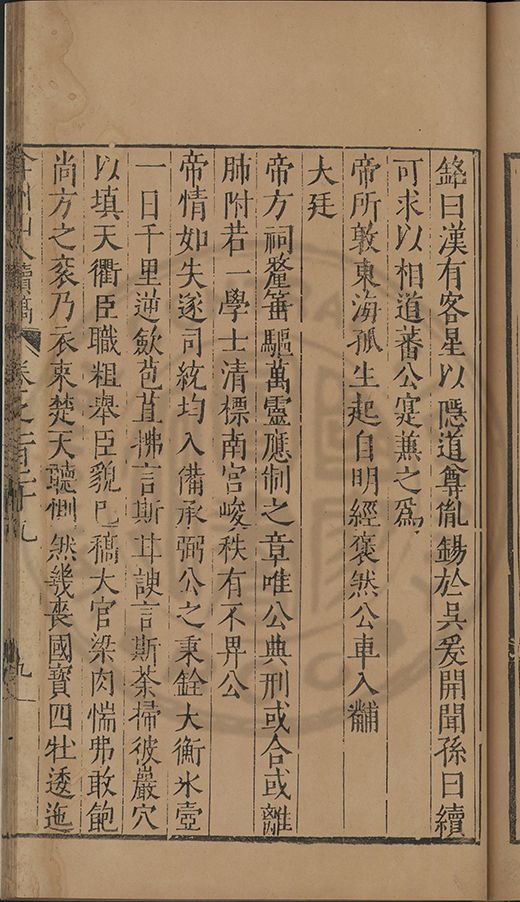 銘曰漢有客星以隱道尊胤錫於吳爰開聞孫曰續
可求以相道蕃公寔兼之爲
帝所敦東海孤生起自明經褒然公車入黼
大廷
帝方祠釐篝驅萬靈應制之章唯公典刑或合或離
肺附若一學士清標南宮峻秩有不畀公
帝情如失遂司統均入備承弼公之秉銓大衡氷壺
一日千里逆歛苞苴拂言斯茸諛言斯荼掃彼巖穴
以填天衢臣職粗舉臣貌已槁大官梁肉惴弗敢飽
尚方之衮乃衣東楚天聽惻然幾喪國寶四牡逶迤
弇州山人續稿
卷之一百三十九
九